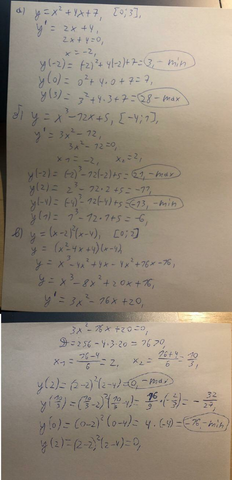 а) y = x² + 4x + 7, [0; 3],
y' = 2x + 4,
2x + 4 = 0,
x = -2,
y(-2) = (-2)² + 4·(-2) + 7 = 3, - min
y(0) = 0² + 4·0 + 7 = 7,
y(3) = 3² + 4·3 + 7 = 28 - max
б) y = x³ - 12x + 5, [-4; 1],
y' = 3x² - 12,
3x² - 12 = 0,
x₁ = -2, x₂ = 2,
y(-2) = (-2)³ - 12·(-2) + 5 = 21, - max
y(2) = 2³ - 12·2 + 5 = -11,
y(-4) = (-4)³ - 12·(-4) + 5 = -13, - min
y(1) = 1³ - 12·1 + 5 = -6,
в) y = (x-2)²(x-4), [0; 2]
y = (x² - 4x + 4)(x-4)
y = x³ - 4x² + 4x - 4x² + 16x - 16,
y = x³ - 8x² + 20x + 16,
y' = 3x² - 16x + 20,
3x² - 16x + 20 = 0,
D = 256 - 4·3·20 = 16 > 0,
x₁ = 16-4/6 = 2, x₂ = 16+4/6 = 10/3,
y(2) = (2-2)²(2-4) = 0, - max
y(10/3) = (10/3 - 2)²(10/3 - 4) = 16/9·(-2/3) = -32/27,
y(0) = (0-2)²(0-4) = 4·(-4) = -16, - min
y(2) = (2-2)²(2-4) = 0,